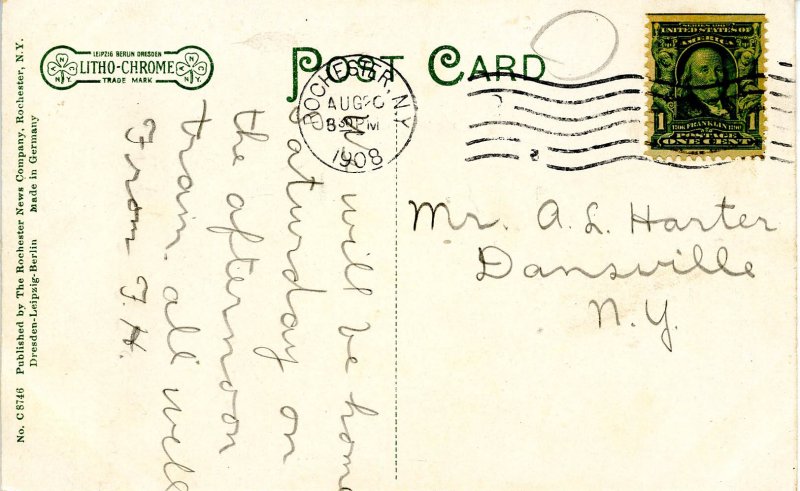 LEIPZIG BERLIN DRESDEN
LITHO-CHROME
TRADE MARK
POST CARD
ROCHESTER, N.Y.
AUG 20
8 30 PM
1908
SERIES 1902
UNITED STATES OF
AMERICA
1 1706 FRANKLIN 1790 1
POSTAGE
ONE CENT
Mr. A. L. Harter
Dansville
N.Y.
will be home
Saturday on
the afternoon
train. all well
From F. H.
No. C 8746 Published by The Rochester News Company, Rochester, N.Y.
Dresden-Leipzig-Berlin Made in Germany